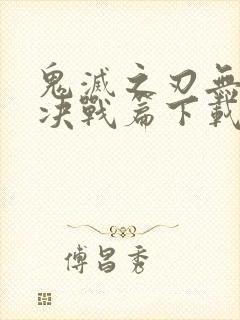 鬼滅之刃無
決戰篇下載
傅昌秀